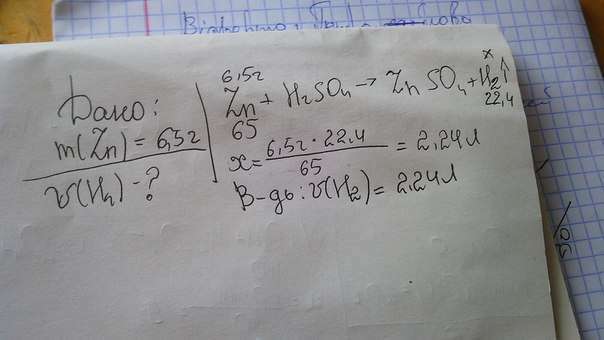 Відповідно:
Дано:
m(Zn) = 6,5г
V(H2) - ?
6,5г x
Zn + H2SO4 → ZnSO4 + H2↑
65 22,4
x = 6,5г · 22,4 / 65 = 2,24л
В-дь: V(H2) = 2,24л